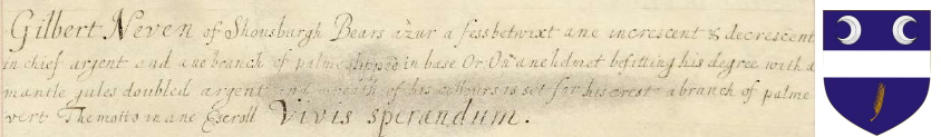 Gilbert Neven of Shousburgh Bears azur a fess betwixt ane increscent & decrescent
in chief argent and ane branch of palme slipped in base Or. On ane helmet befitting his degree with a
mantle gules doubled argent and wreath of his collours is set for his crest a branch of palme
vert The motto in ane Escroll Vivis sperandum.